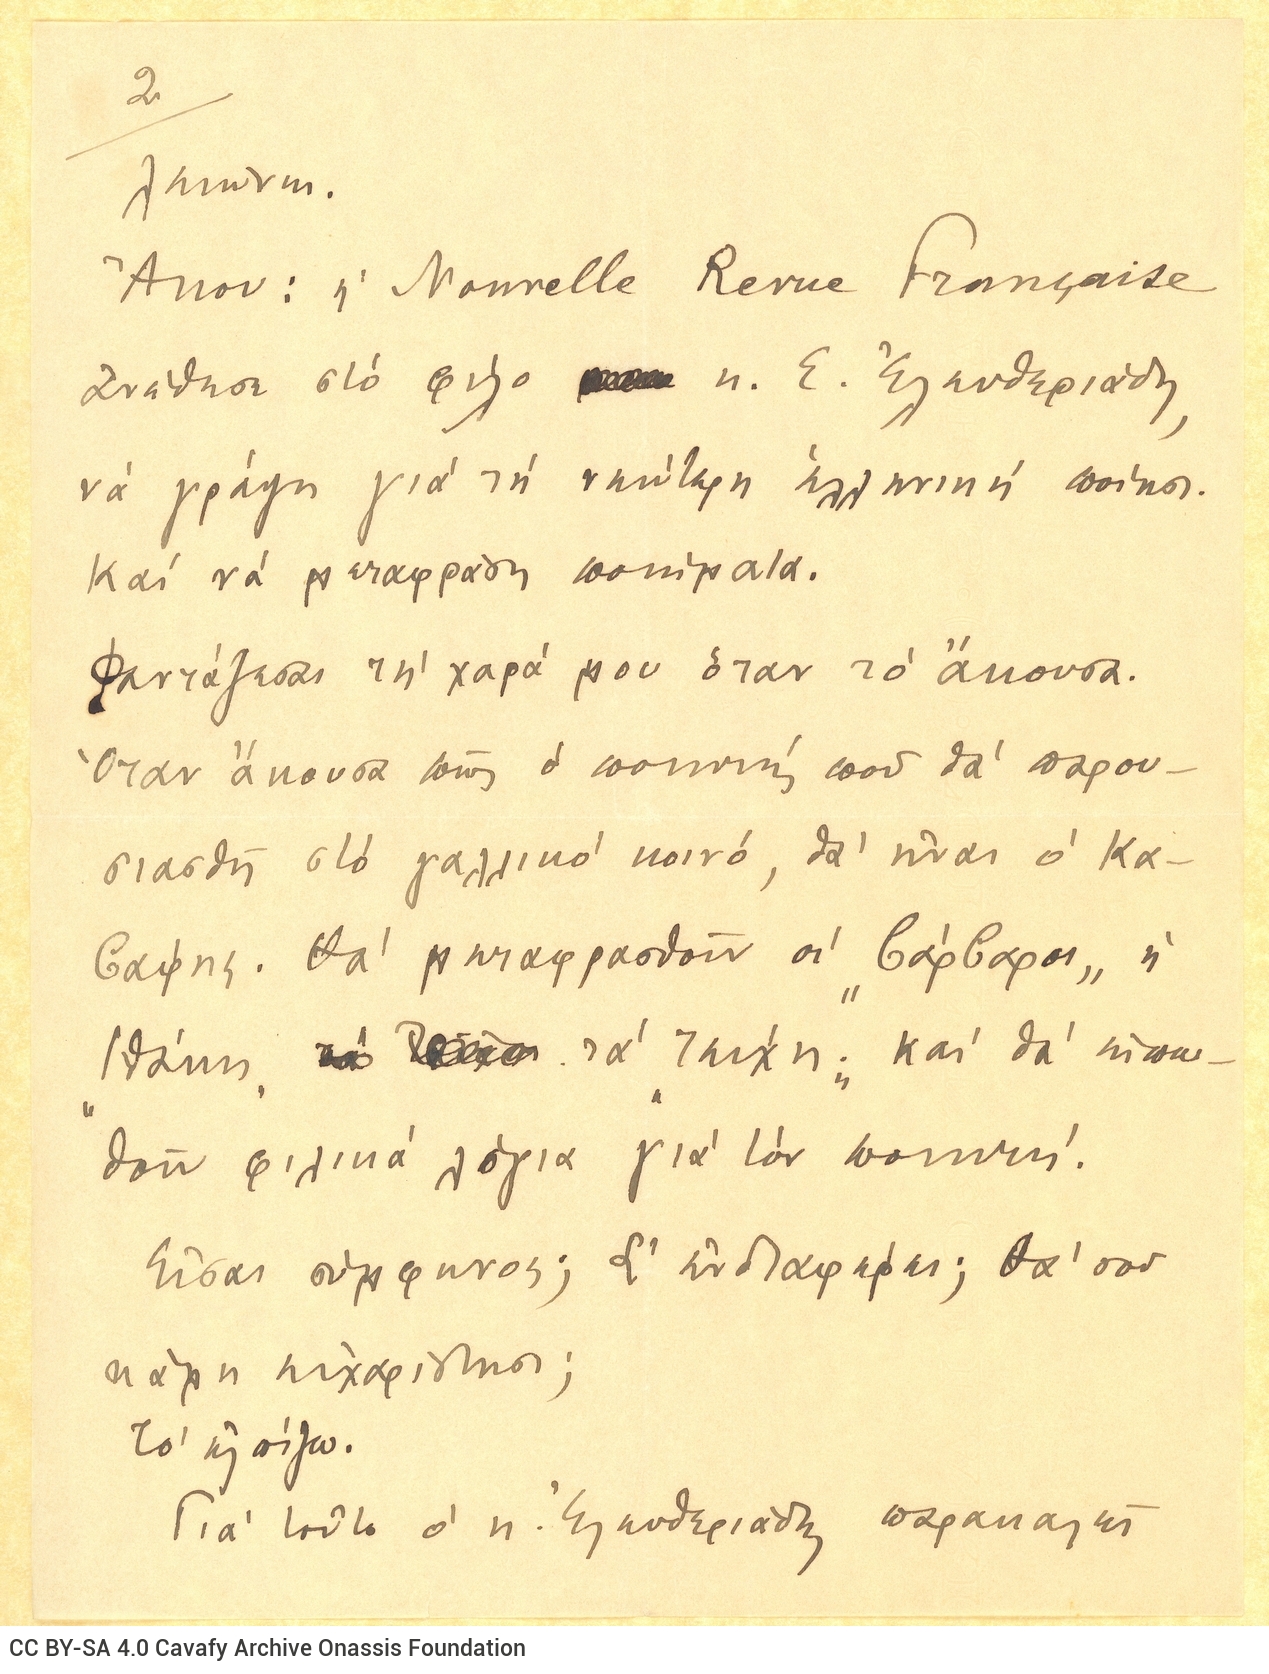 2
λειώνει.
Ἄκου: ἡ Nouvelle Revue Française
ἀνέθεσε στό φίλο κ. Ε. Ἐλευθεριάδη,
νά γράψῃ γιά τή νεώτερη ἑλληνική ποίησι.
Καί νά μεταφράσῃ ποιήματα.
Φαντάζεσαι τή χαρά μου ὅταν τό ἄκουσα.
Ὅταν ἄκουσα πῶς ὁ ποιητής ποῦ θά παρου–
σιασθῇ στό γαλλικό κοινό, θά εἶναι ὁ Κα–
βαφης. Θά μεταφρασθοῦν οἱ „βάρβαροι„ ἡ
„Ἰθάκη, τά „Τείχη„. Καί θά εἰπω–
θοῦν φιλικά λόγια γιά τόν ποιητή.
Εἶσαι σύμφωνος; Σ' ἐνδιαφέρει; Θά σοῦ
κάμῃ εὐχαρίστησι;
Τό ἐλπίζω.
Γιά τοῦτο ὁ κ. Ἐλευθεριάδης παρακαλεῖ
CC BY-SA 4.0 Cavafy Archive Onassis Foundation